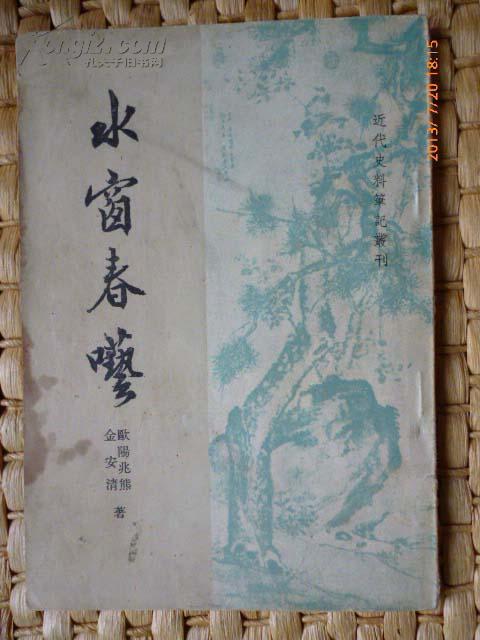 水窗春囈
歐陽兆熊
金安清 著
近代史料筆記叢刊
2013/7/20 18:15
孔夫子旧书网